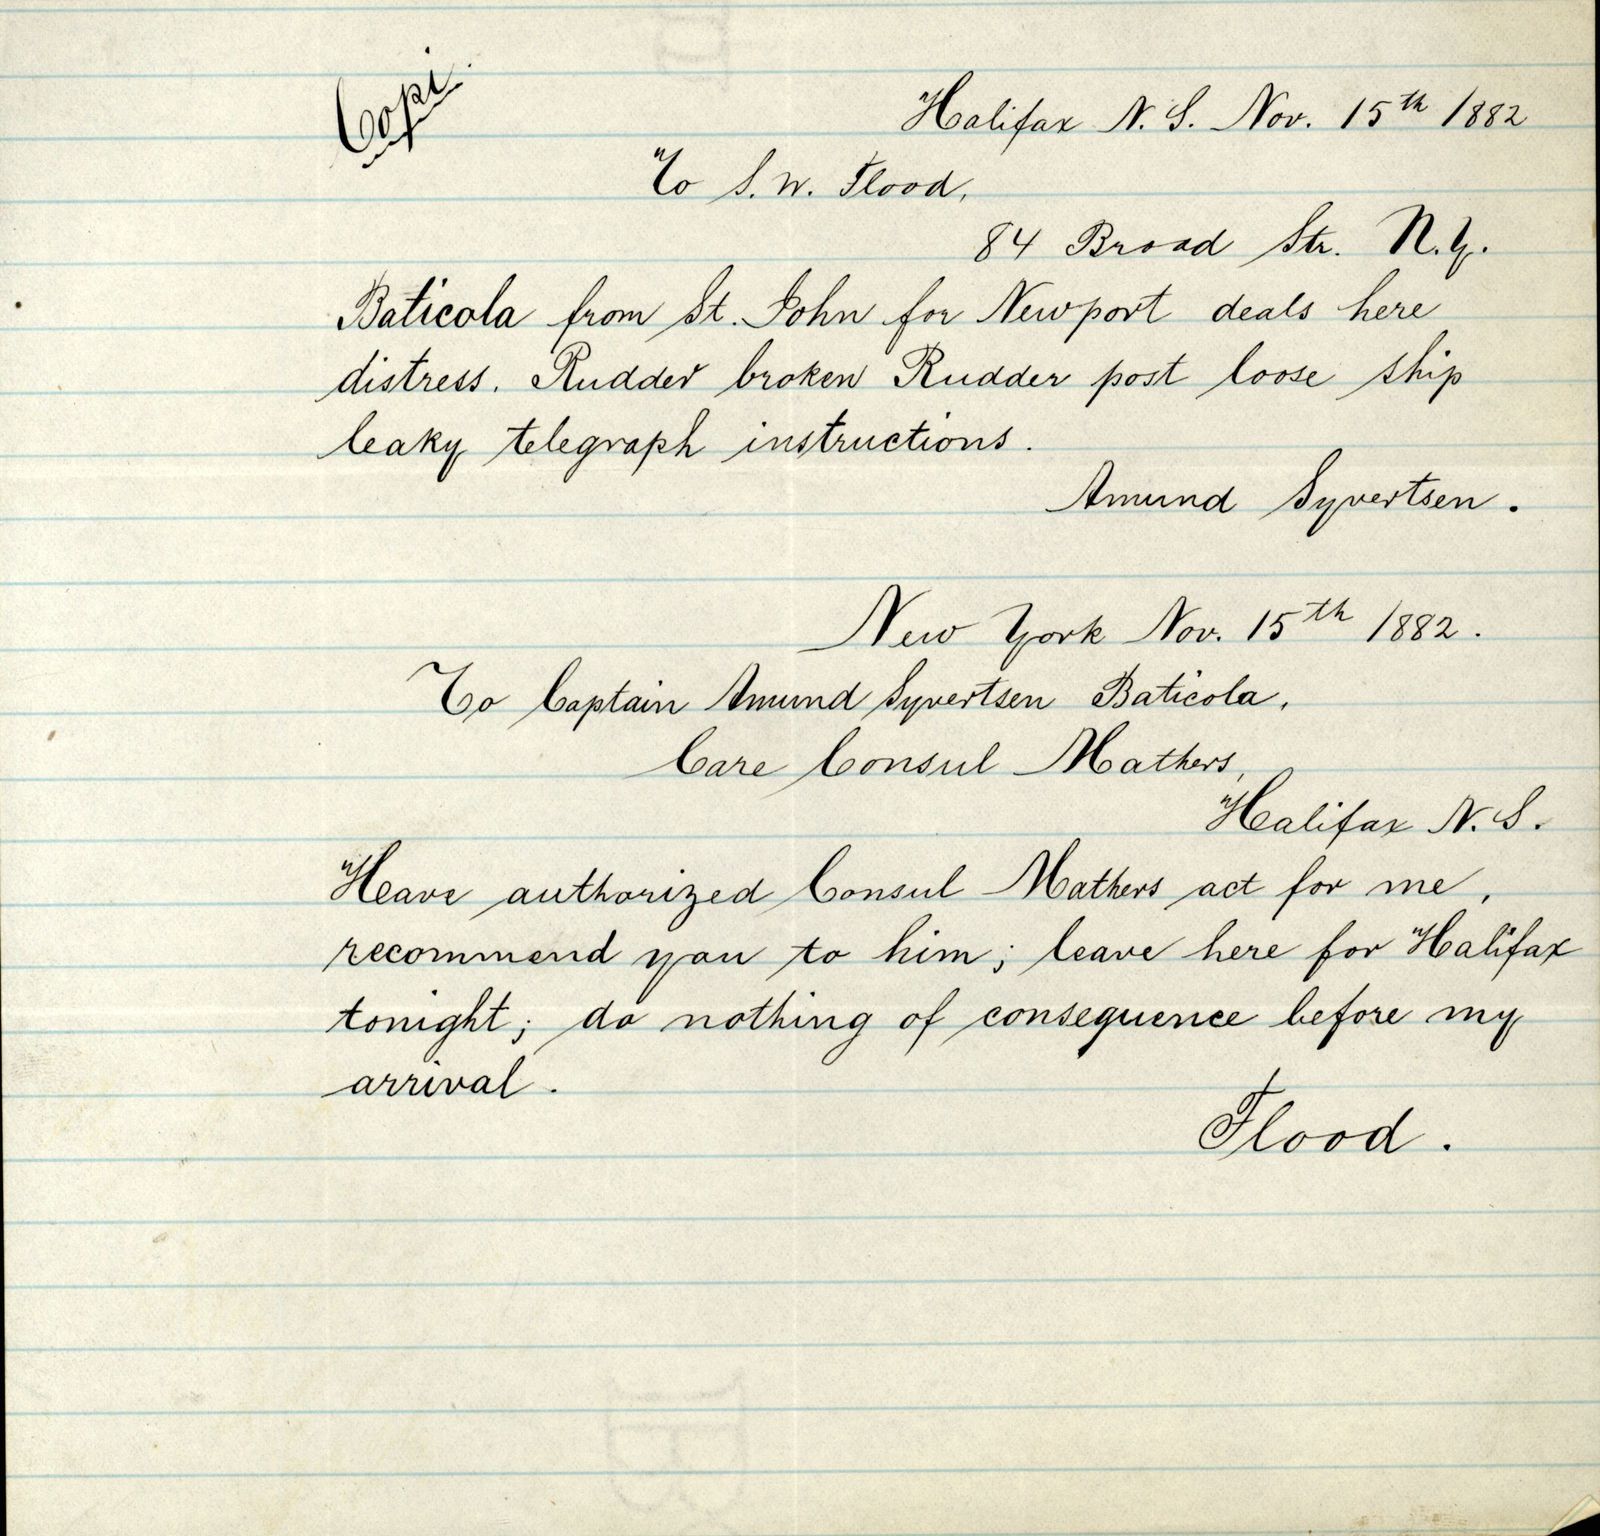 Copi.
Halifax N. S. Nov. 15th 1882
To S. W. Flood,
84 Broad Str. N.Y.
Baticola from St. John for Newport deals here
distress. Rudder broken Rudder post loose ship
leaky telegraph instructions.
Amund Syvertsen.
New York Nov. 15th 1882.
To Captain Amund Syvertsen Baticola,
Care Consul Mathers,
Halifax N. S.
Heave authorized Consul Mathers act for me,
recommend you to him; leave here for Halifax
tonight; do nothing of consequence before my
arrival.
Flood.